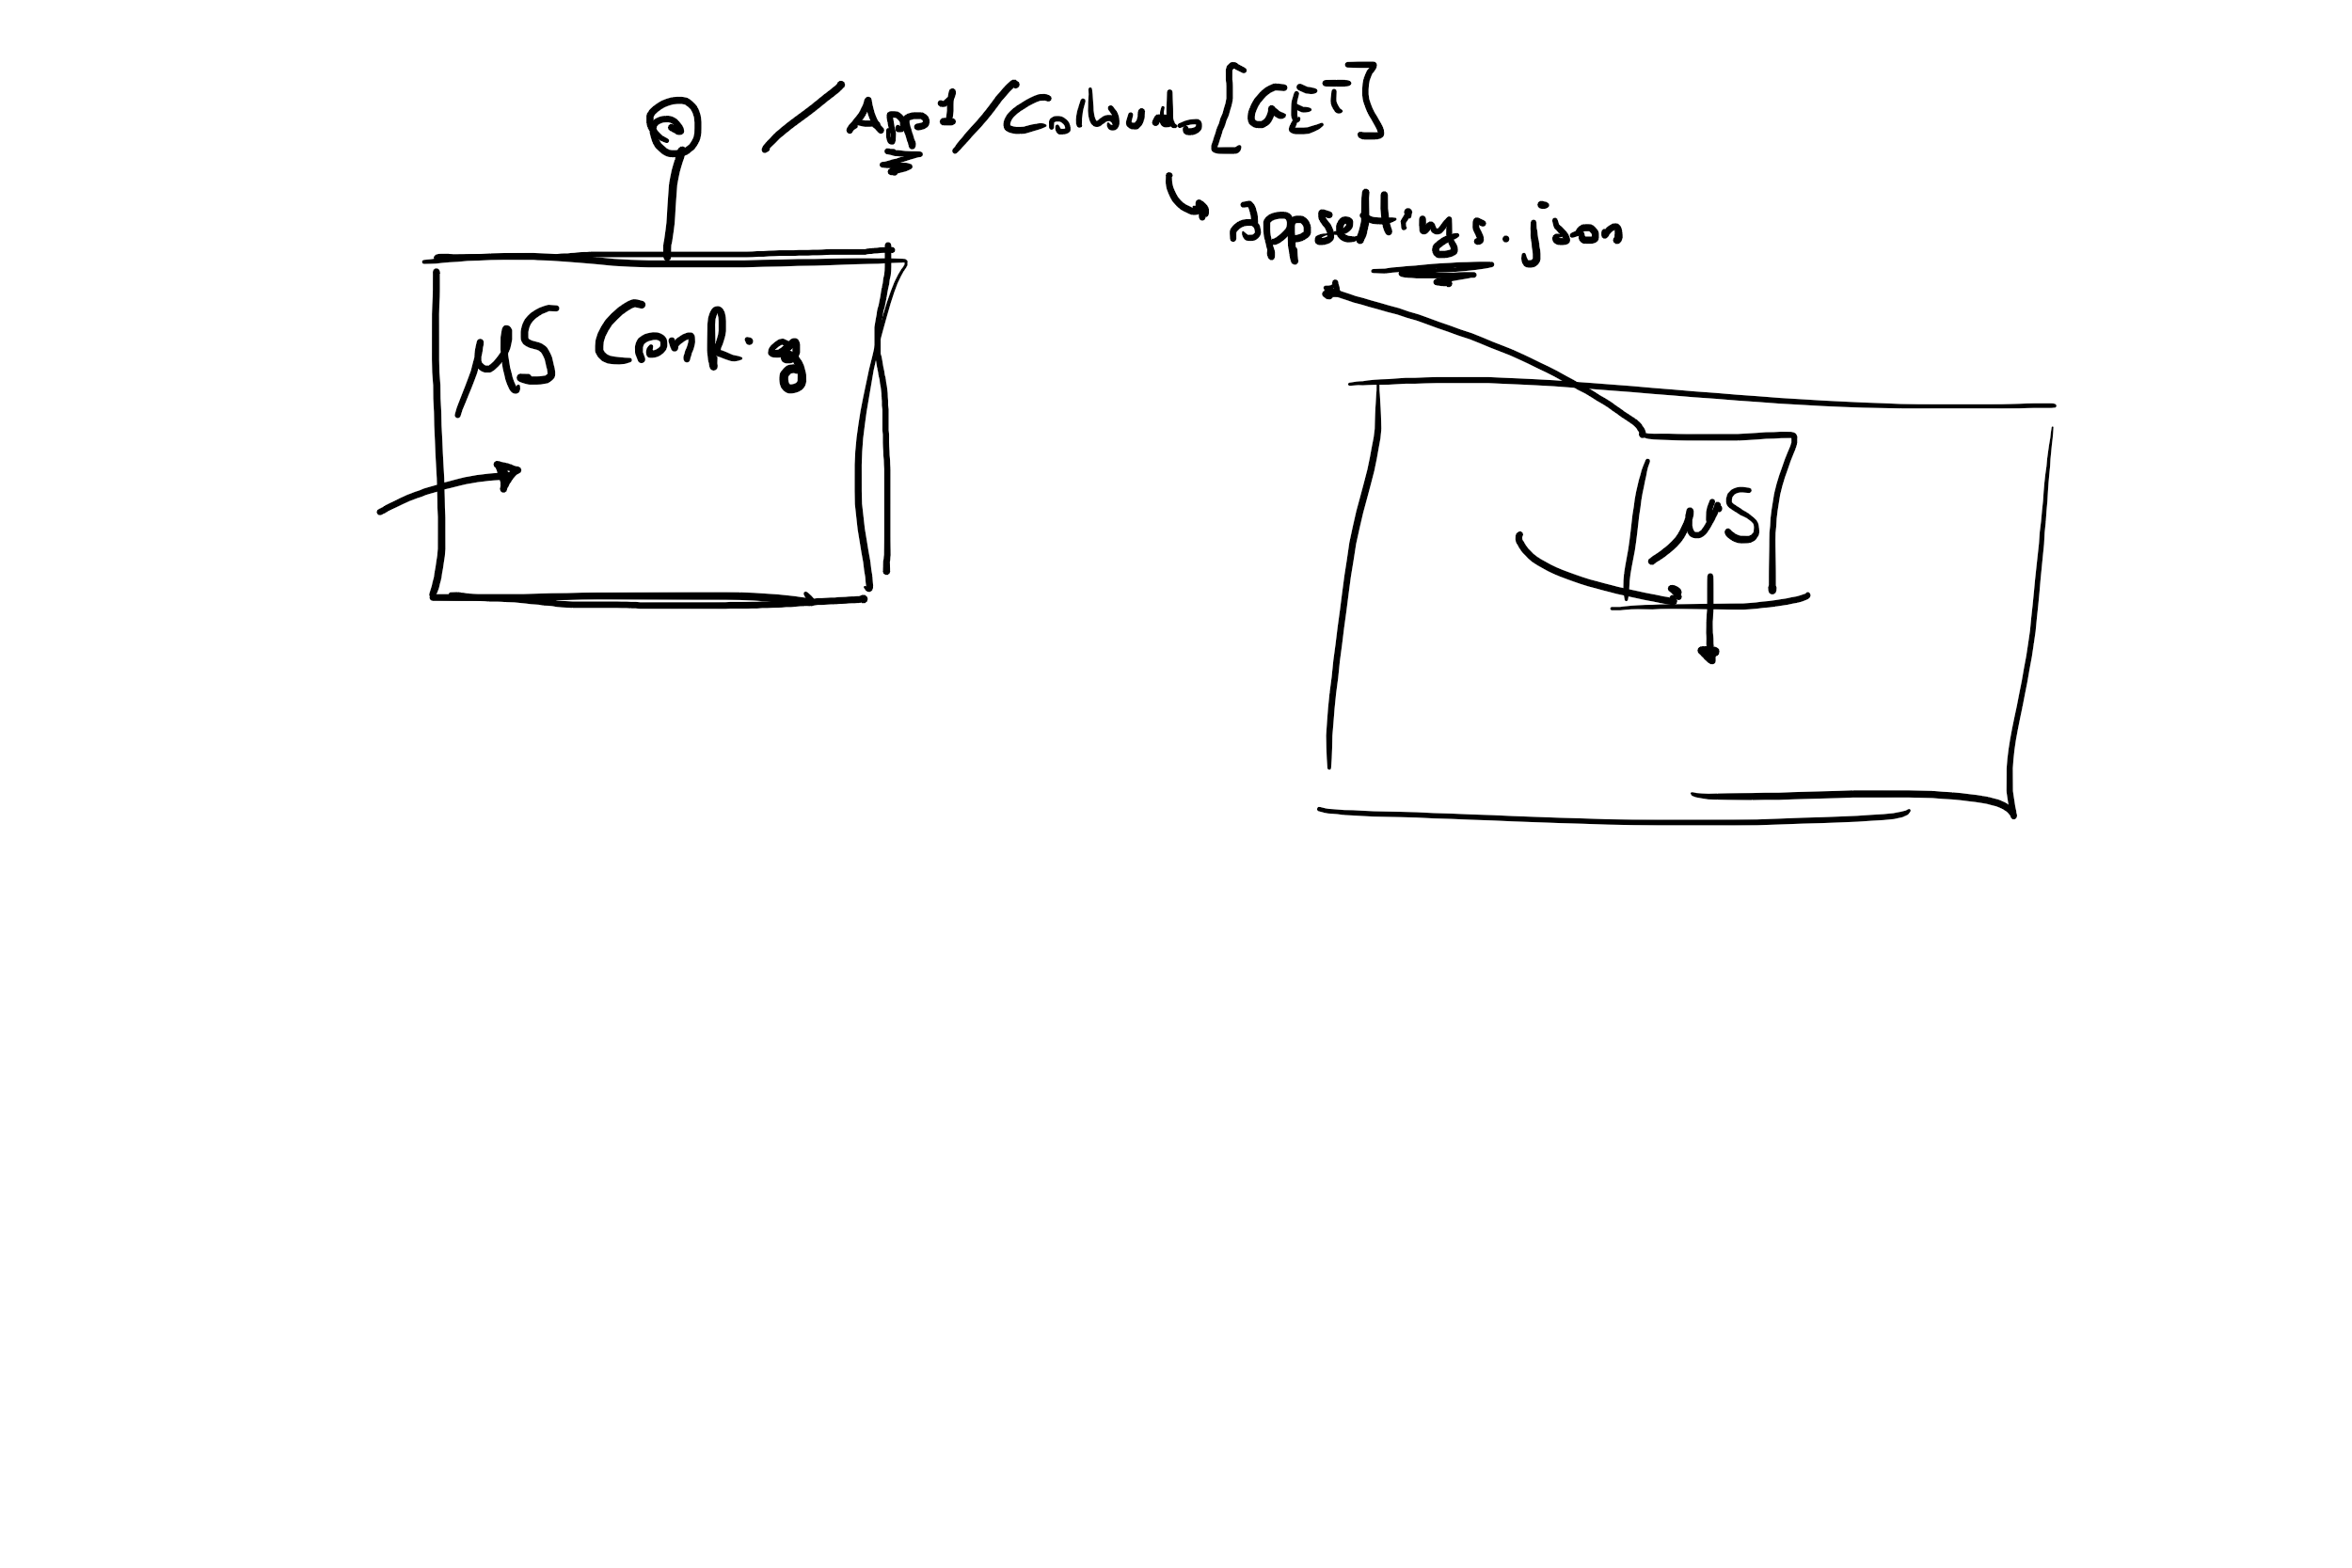 /Api/Columb[GET]
appsettings.json
µS Config
µS